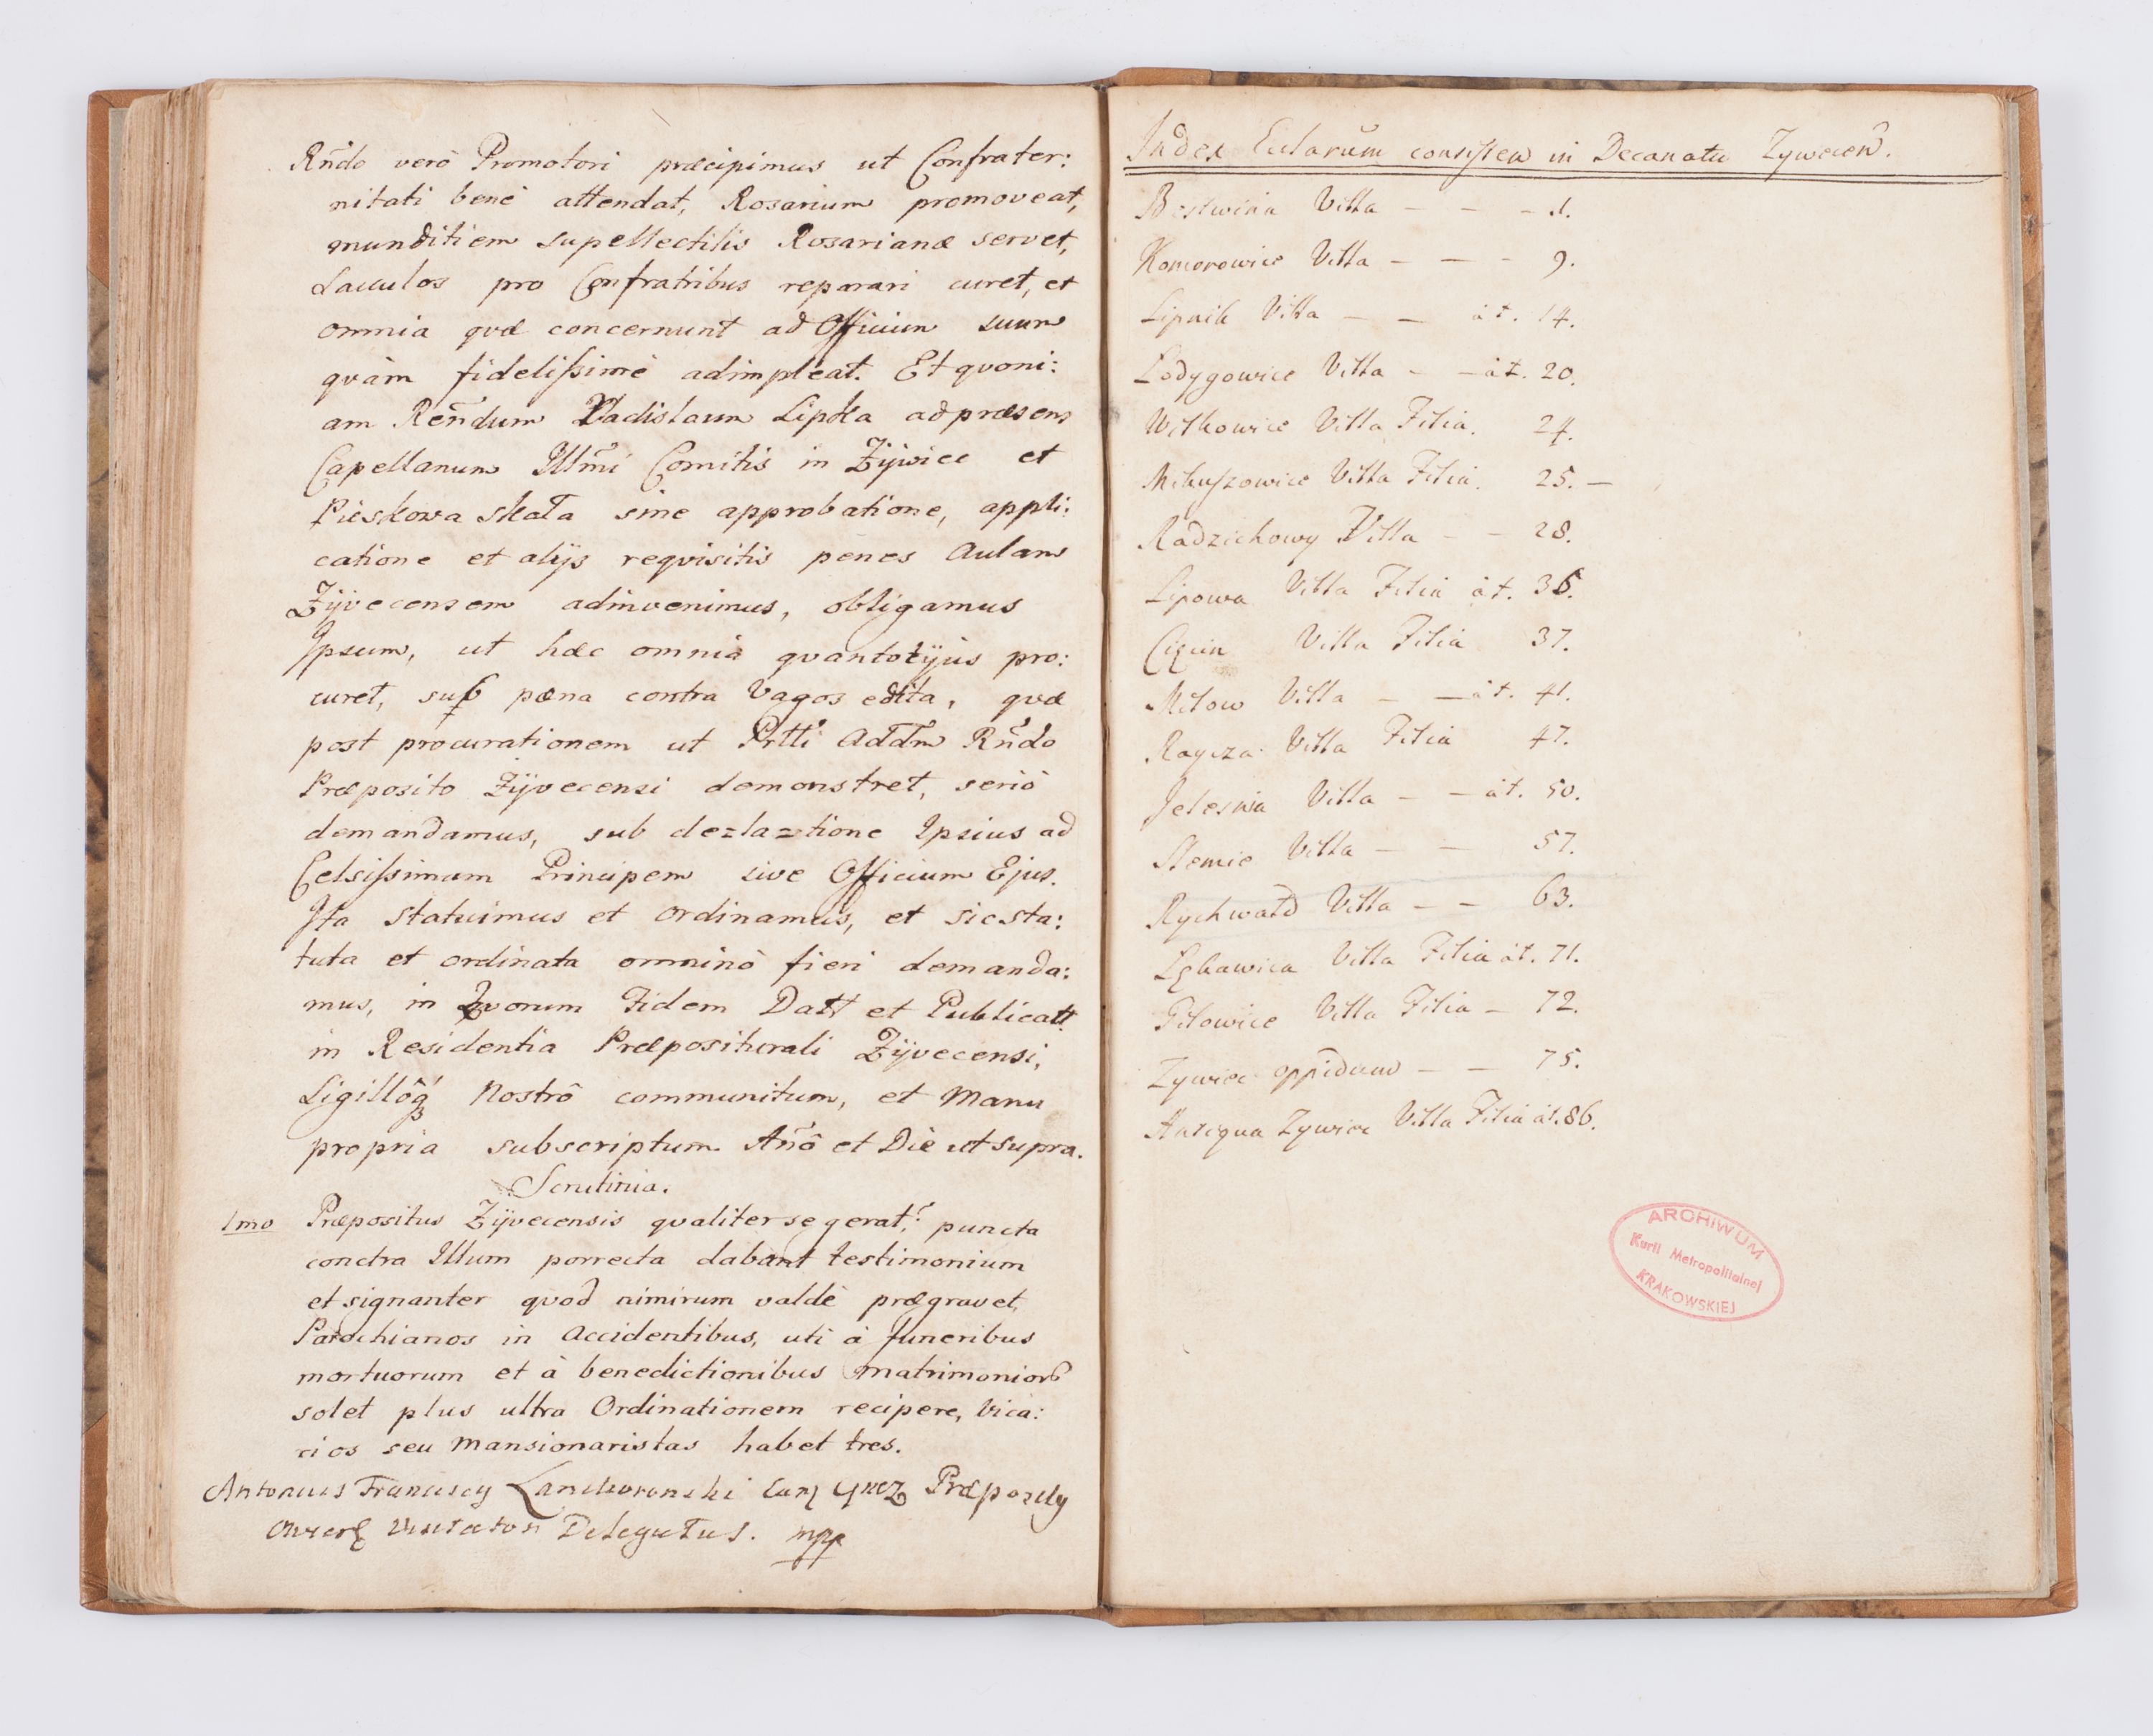 Rñdo verò Promotori præcipimus ut Confrater:
nitati benè attendat, Rosarium promoveat,
munditiem supellectilis Rosarianæ servet,
Sacculos pro Confratribus reparari curet, et
omnia qvæ concernunt ad Officium suum
qvàm fidelissimè adimpleat. Et qvoni:
am Reñdum Vladislaum Lipka ad præsens
Capellanum Illmi Comitis in Żijwiec et
Pieskowa Skała sine approbatione, appli:
catione et alijs reqvisitis penes Aulam
Żijvecensem adinvenimus, obligamus
Ipsum, ut hæc omnia qvantotijus pro:
curet, sub pæna contra Vagos edita, qvæ
post procurationem ut Prtti Addm Rñdo
Præposito Żijvecensi demonstret, seriò
demandamus, sub de=la=tione Ipsius ad
Celsissimum Principem sive Officium Ejus.
Ita statuimus et ordinamus, et sic sta:
tuta et ordinata omninò fieri demanda:
mus, in Qvorum Fidem Datt et Publicatt
in Residentia Præpositurali Żijvecensi,
Sigillôq́ Nostrô communitum, et Manu
propria subscriptum. Añô et Die ut supra.
Scrutinia.
1mo Præpositus Żijvecensis qvaliter se gerat? puncta
conctra Illum porrecta dabant testimonium
et signanter qvod nimirum valdè prægravet,
Parochianos in Accidentibus, uti à funeribus
mortuorum et à benedictionibus matrimonior
solet plus ultra Ordinationem recipere, Vica:
rios seu Mansionaristas habet tres.
Antonius Franciscy Lanckoronski
Delegatus. mpp
Index Eclarum consisten in Decanatu Zywecen.
Bestwina Villa - - - 1.
Komorowice Villa - - - 9.
Lipnik Villa - - at. 14.
Lodygowice Villa - - at. 20.
Wilkowice Villa Filia. 24.
Mikuszowice Villa Filia. 25. -
Radziechowy Villa - - 28.
Lipowa Villa Filia at. 36.
Cięcin Villa Filia 37.
Milow Villa - - at. 41.
Raycza Villa Filia 47.
Jelesnia Villa - - at. 50.
Slemie Villa - - 57.
Rychwałd Villa - - 63.
Lękawica Villa Filia at. 71.
Gilowice Villa Filia - 72.
Zywiec oppidum - - 75.
Antiqua Zywiec Villa Filia at. 86.
ARCHIWUM
Kurii Metropolitalnej
KRAKOWSKIEJ